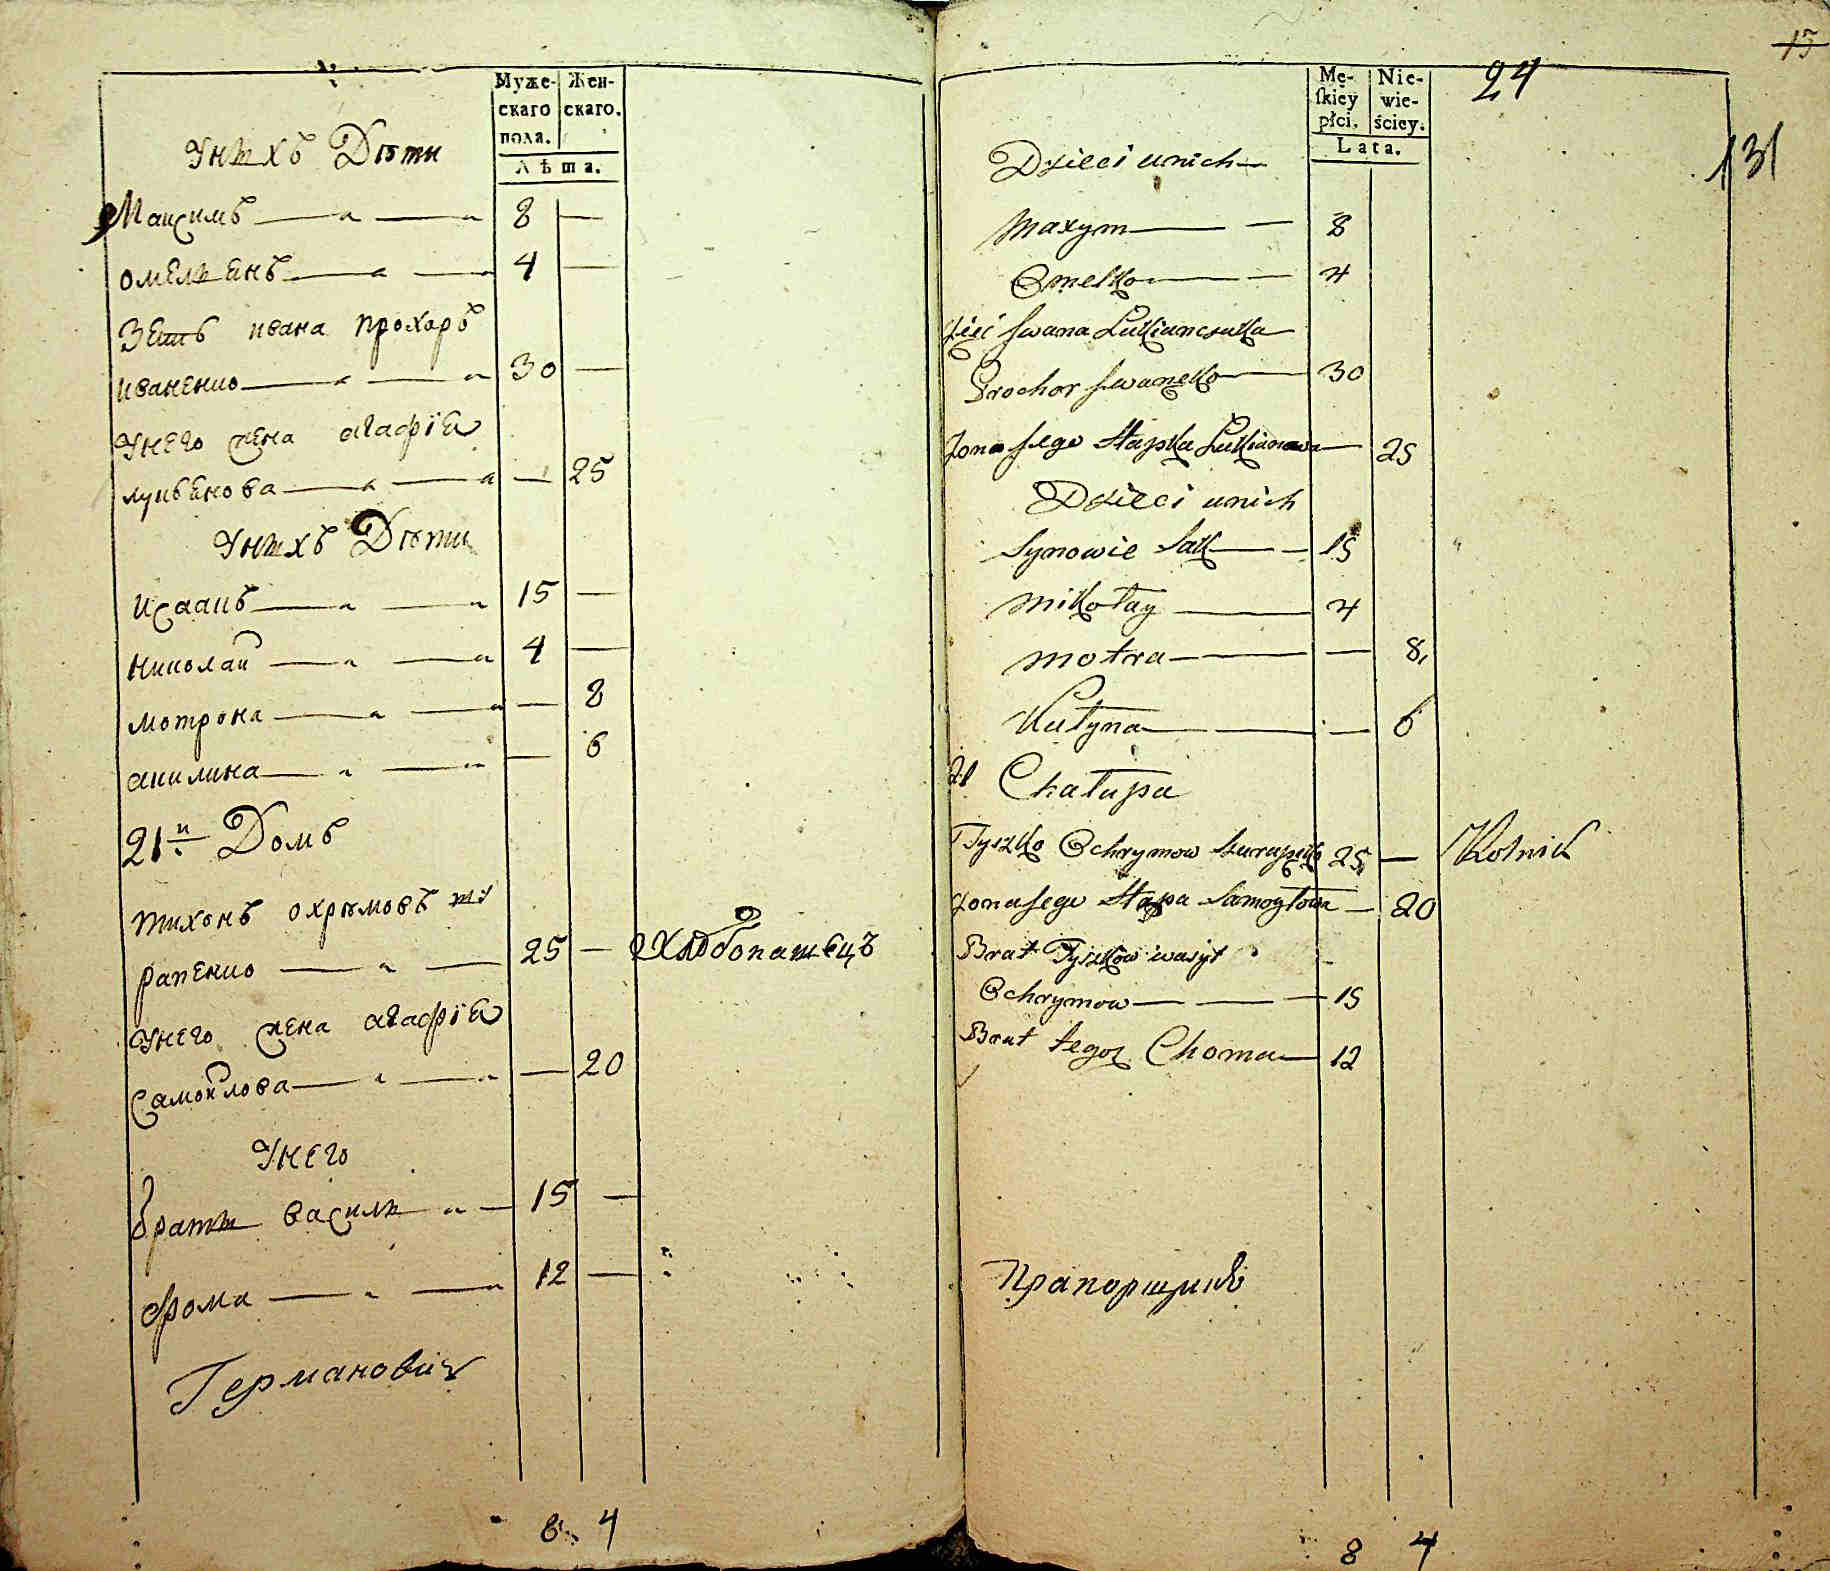 Муже- Жен-
скаго скаго.
пола.
Лѣта.
Унихъ Дѣти
Максимъ 8 —
омелянъ 4 —
Зеть ивана прохоръ
иваненко 30 —
Унего жена агафія
лукянова — 25
Унихъ Дѣти
исаакъ 15 —
николай 4 —
мотрона — 8
акилина — 6
21й Домъ
тихонъ охримовъ
рапенко 25 — Хлѣбопашецъ
Унего жена агафія
Самойлова — 20
Унего
братя василь 15 —
фома 12 —
Германович
8 4
15
24
131
Mę- Nie-
ſkiey wie-
płci. ściey.
Lata.
Dzieci unich
Maxym 8
Omelko 4
Zięć Jwana Lukianczuka
Prochor Jwanenko 30
Zona jego Hapka Lukianowa 25
Dzieci unich
Synowie Sak 15
Mikołay 4
Motra — 8
Kulyna — 6
21 Chałupa
Tyszko Ochrymow 25 — Rolnik
Zona jego Hapa Samoyłowa — 20
Brat Tyszkow wasyl
Ochrymow 15
Brat tegoz Choma 12
Прапорщикъ
8 4